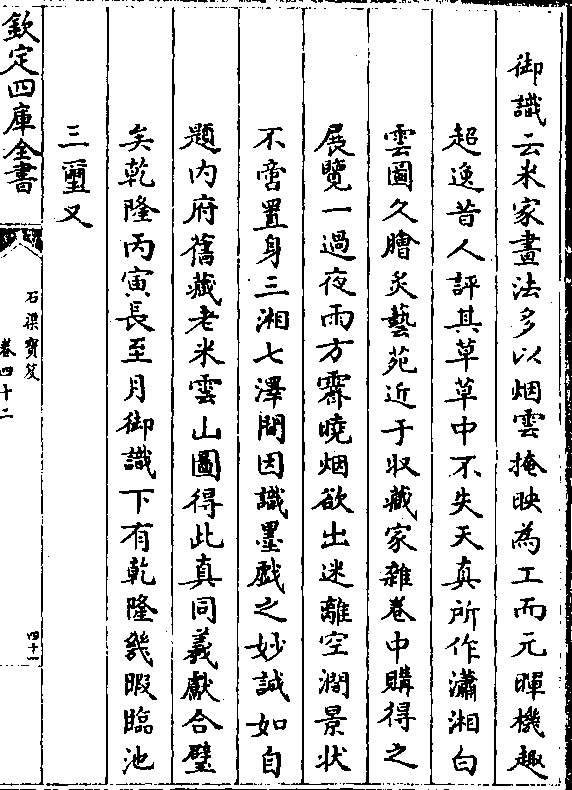 御識云米家畫法多以烟雲掩映為工而元暉機趣
超逸昔人評其草草中不失天真所作瀟湘白
雲圖久膾炙藝苑近于収藏家雜卷中購得之
展覽一過夜雨方霽曉烟欲出迷離空濶景状
不啻置身三湘七澤間因識墨戯之妙誠如自
題内府舊藏老米雲山圖得此真同羲獻合璧
矣乾隆丙寅長至月御識下有乾隆幾暇臨池
三璽又
欽定四庫全書
石渠寶笈
卷四十二
四十一